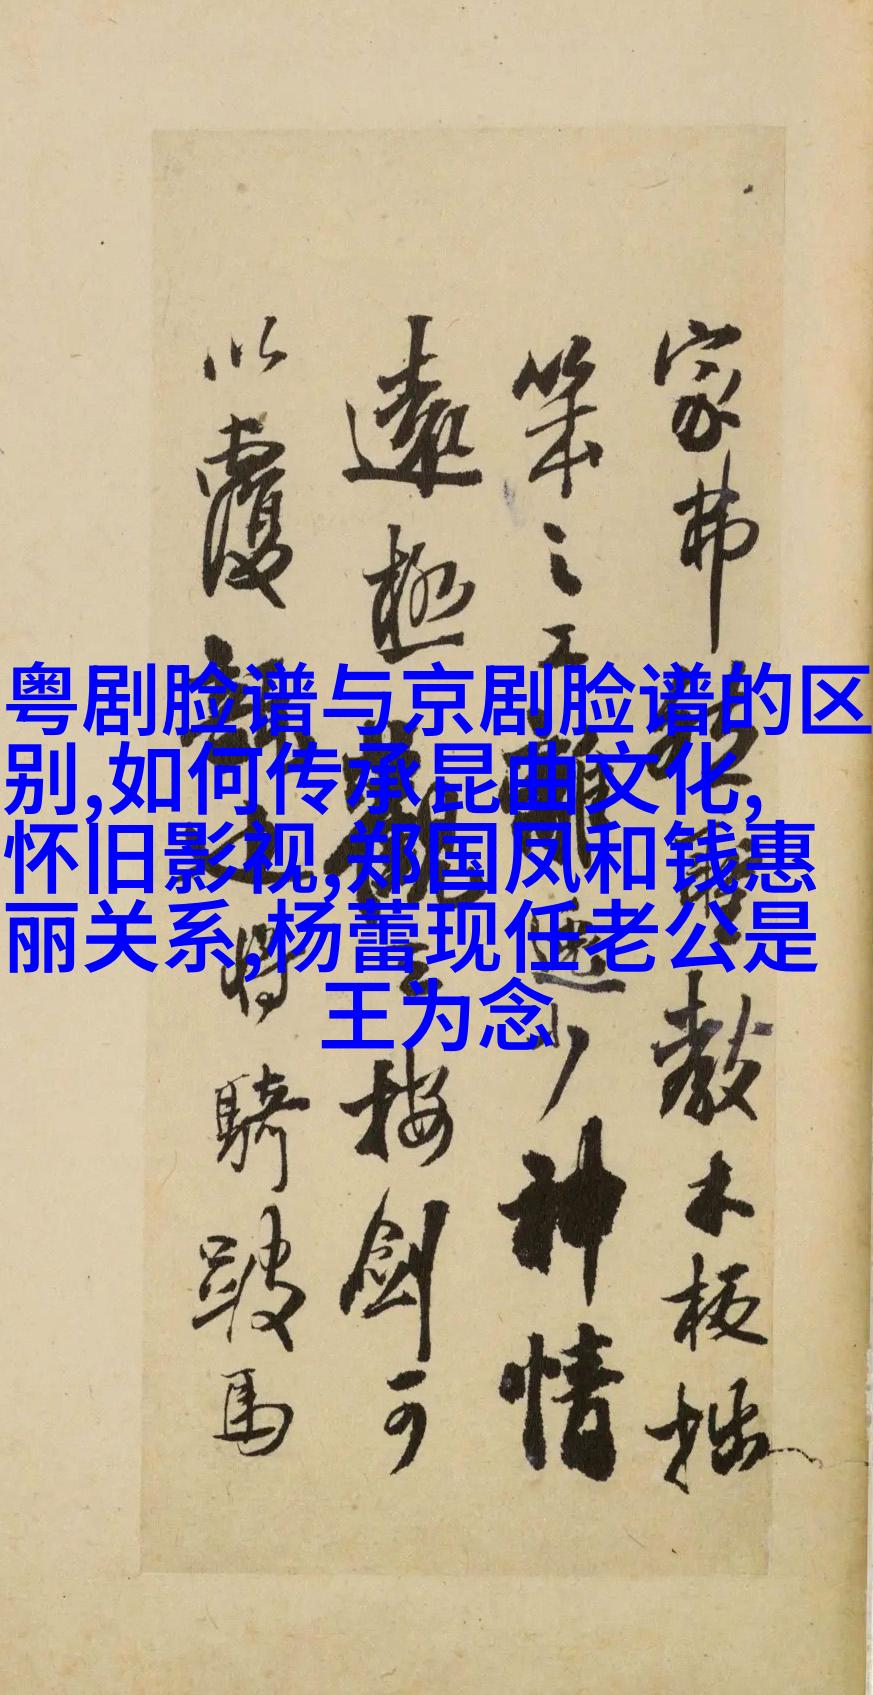 粤剧脸谱与京剧脸谱的区
别,如何传承昆曲文化,
怀旧影视,郑国凤和钱惠
丽关系,杨蕾现任老公是
王为念
家弗
教木板拙
笔之工
少神情
遠極
按剑可
以覆
将騎跛馬